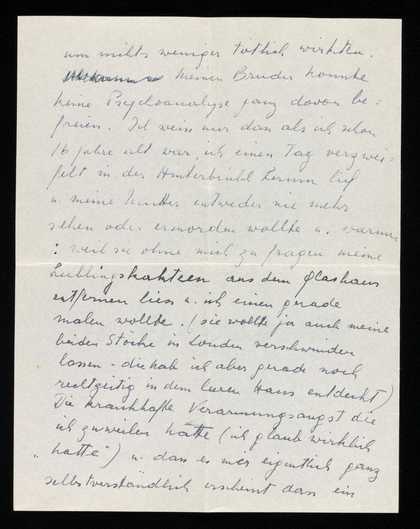 um nichts weniger tötlich wirkten.
Meinen Bruder konnte
keine Psychoanalyse ganz davon be-
freien. Ich weiss nur dass als ich schon
16 Jahre alt war, ich einen Tag verzwei-
felt in der Hinterbrühl herum lief
u. meine Mutter entweder nie mehr
sehen oder ermorden wollte u. warum
: weil sie ohne mich zu fragen meine
Lieblingskakteen aus dem Glashaus
entfernen liess u. ich einen gerade
malen wollte. (sie wollte ja auch meine
beiden Störche in London verschwinden
lassen - die hab ich aber gerade noch
rechtzeitig in dem leeren Haus entdeckt)
Die krankhafte Verarmungsangst die
ich zuweilen hatte (ich glaub wirklich
"hatte") u. dass es mir eigentlich ganz
selbstverständlich erscheint dass ein